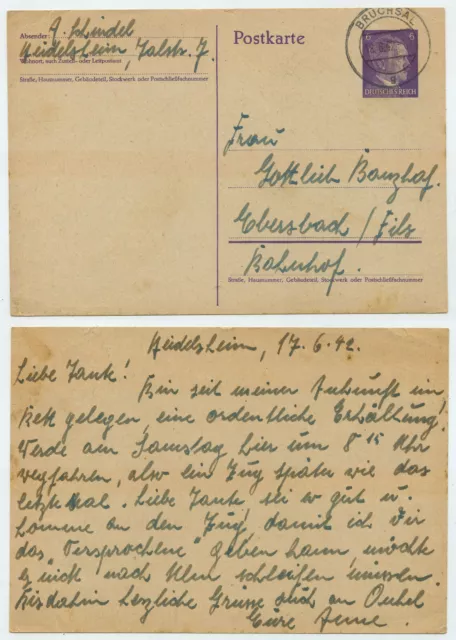 Absender: J. Schindel
Heidelsheim, Talstr. 7
Wohnort, auch Zustell- oder Leitpostamt
Straße, Hausnummer, Gebäudeteil, Stockwerk oder Postschließfachnummer
Postkarte
BRUCHSAL
6 6
DEUTSCHES REICH
Frau
Gottlieb Banzhaf.
Ebersbach / Fils
Bahnhof.
Straße, Hausnummer, Gebäudeteil, Stockwerk oder Postschließfachnummer
Heidelsheim, 17.6.42.
Liebe Tante! Bin seit meiner Ankunft im
Bett gelegen, eine ordentliche Erkältung!
Werde am Samstag hier um 8 15 Uhr
wegfahren, also ein Zug später wie das
letzte Mal. Liebe Tante sei so gut u.
komme an den Zug, damit ich Dir
das "Versprochene" geben kann, möchte
es nicht nach Ulm schleifen müssen.
Bis dahin herzliche Grüsse auch an Onkel
Eure